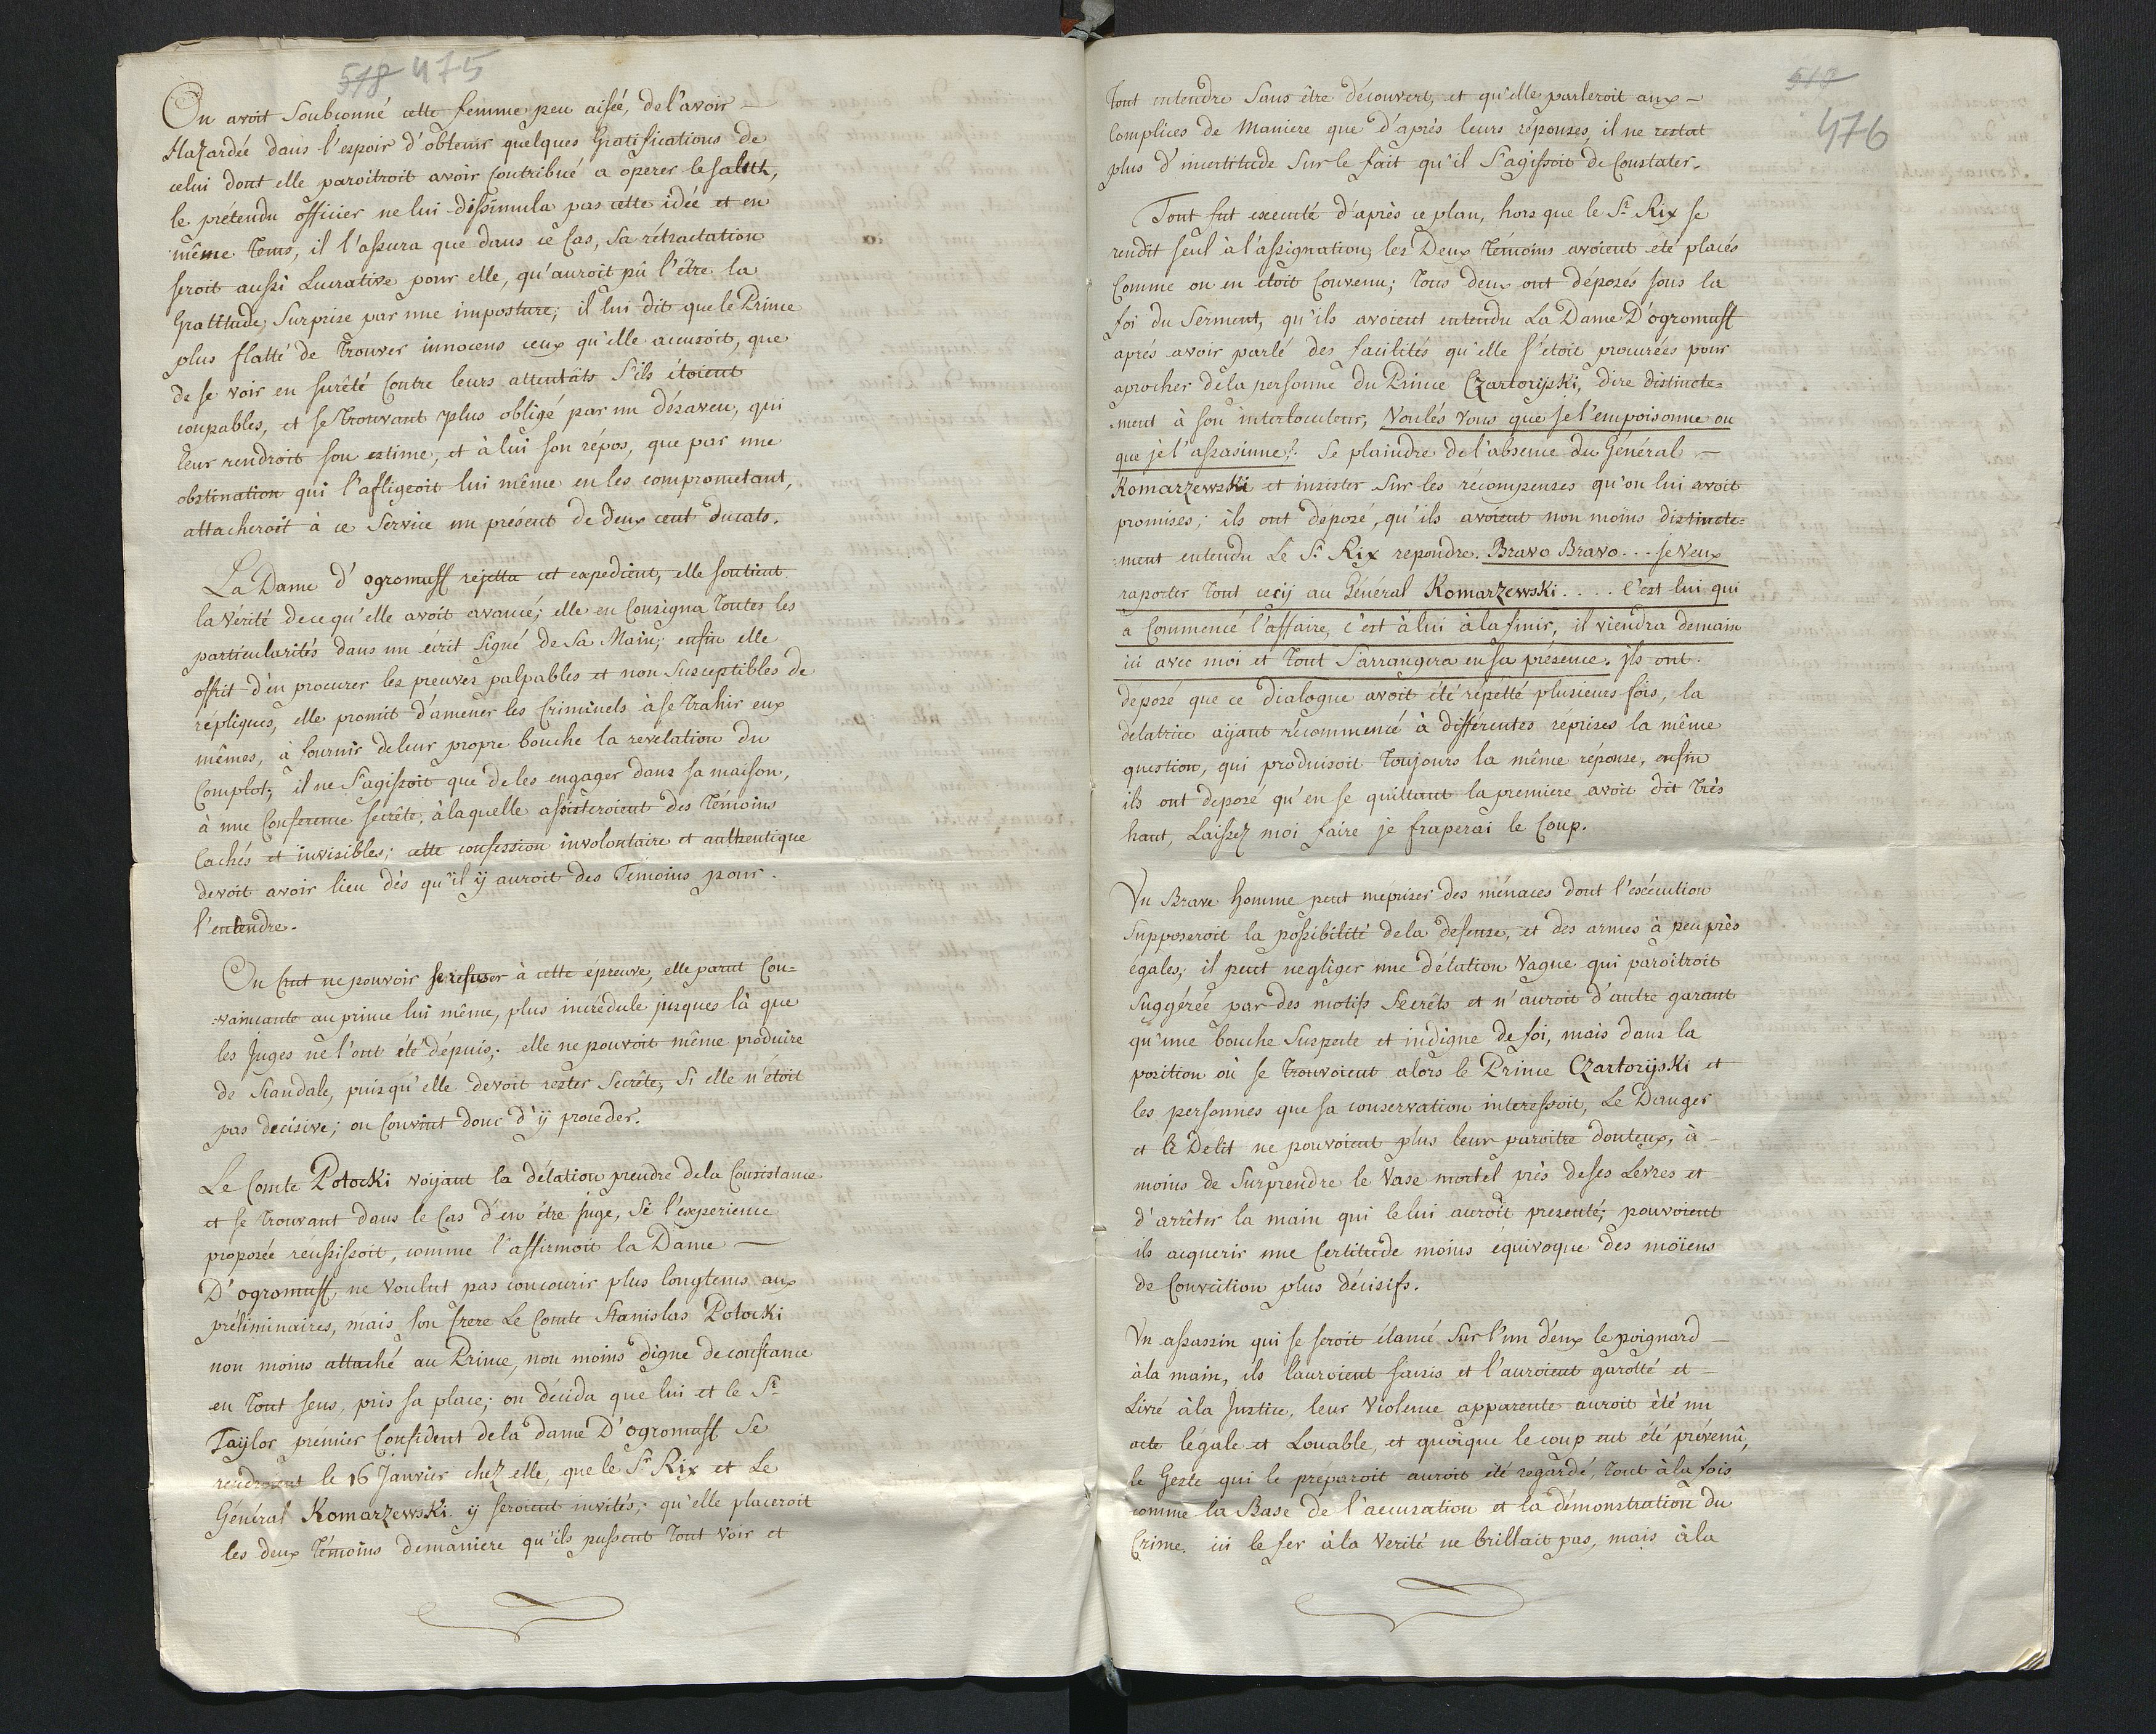 518 475
On avoit Soubconné cette femme peu aisée, de l'avoir —
Hazardée dans l'espoir d'obtenir quelques Gratifications de
celui dont elle paroitroit avoir Contribué a operer le salut,
le prétendu officier ne lui dissimula pas cette idée et en
même Tems, il l'assura que dans ce Cas, Sa rétractation
seroit aussi Lucrative pour elle, qu'auroit pû l'être la
Gratitude, Surprise par une imposture; il lui dit que le Prince
plus flatté de Trouver innocens ceux qu'elle accusoit, que
de se voir en sureté Contre leurs attentats S'ils étoient
coupables, et se Trouvant plus obligé par un désaveu, qui
leur rendroit son estime, et à lui son répos, que par une
obstination qui l'afligeoit lui même en les comprometant,
attacheroit à ce Service un présent de Deux cent Ducats.
La Dame d'ogromuff rejetta cet expedient, elle soutient
la Vérité de ce qu'elle avoit avancé; elle en Consigna Toutes les
particularités dans un écrit Signé de Sa Main; enfin elle
offrit d'en procurer les preuves palpables et non Susceptibles de
répliques, elle promit d'amener les Criminels à se Trahir eux
mêmes, à fournir de leur propre bouche la revelation du
Complot; il ne S'agissoit que de les engager dans sa maison,
à une Conference secrête, à laquelle assisteroient des Témoins
Cachés et invisibles; cette confession involontaire et authentique
devoit avoir lieu dès qu'il ÿ auroit des Témoins pour.
l'entendre.
On Crut ne pouvoir se refuser à cette épreuve, elle parut Con=
=vaincante au prince lui même, plus incrédule jusques là que
les Juges ne l'ont été dépuis; elle ne pouvoit même produire
de Scandale, puisqu'elle devoit rester Secrête, Si elle n'étoit
pas decisive; on Convint donc d'ÿ proceder.
Le Comte Potocki voÿant la délation prendre de la Consistance
et se Trouvant dans le Cas d'en être Juge, Si l'experience
proposée reussissoit, comme l'affirmoit la Dame —
D'ogromuff, ne Voulut pas concourir plus longtems aux
préliminaires, mais son frere Le Comte Stanislas Potocki
non moins attaché au Prince, non moins digne de confiance
en Tout sens, pris sa place; on décida que lui et le Sr.
Taÿlor prémier Confident de la dame D'ogromuff Se
rendroient le 16 Janvier chez elle, que le Sr. Rix et Le
Général Komarzewski ÿ seroient invités; qu'elle placeroit
les deux Témoins de maniere qu'ils pussent Tout Voir et
476
Tout entendre Sans être découvert, et qu'elle parleroit aux —
Complices de Maniere que d'après leurs réponses, il ne restat
plus d'incertitude Sur le fait qu'il S'agissoit de Constater.
Tout fut executé d'après ce plan, hors que le Sr. Rix se
rendit seul à l'assignation; les Deux Témoins avoient été placés
Comme on en étoit Convenu; Tous deux ont déposés sous la
foi du Serment, qu'ils avoient entendu La Dame D'ogromuff
aprés avoir parlé des facilités qu'elle s'étoit procurées pour
aprocher de la personne du Prince Czartorÿski, dire distincte=
=ment à son interlocuteur, Voulés vous que je l'empoisonne ou
que je l'assasinne? Se plaindre de l'absence du Général —
Komarzewski et insister Sur les récompenses qu'on lui avoit
promises; ils ont déposé, qu'ils avoient non moins distincte=
=ment entendu Le Sr. Rix repondre. Bravo Bravo... je Veux
raporter Tout cecÿ au Général Komarzewski.... C'est lui qui
a Commencé l'affaire, c'est à lui à la finir, il viendra demain
ici avec moi et Tout S'arrangera en sa présence. ils ont
deposé que ce Dialogue avoit été répetté plusieurs fois, la
délatrice aÿant récommencé à différentes réprises la même
question, qui produisoit Toujours la même réponse, enfin
ils ont deposé qu'en se quittant la premiere avoit dit Très
haut, Laissez moi faire je fraperai le Coup.
Un Brave homme peut mepriser des ménaces dont l'exécution
Supposeroit la possibilité de la defense, et des armes à peu près
égales; il peut negliger une délation Vague qui paroitroit
Suggérée par des motifs Secrêts et n'auroit d'autre garant
qu'une bouche Suspecte et indigne de foi, mais dans la
position où se Trouvoient alors le Prince Czartorÿski et
les personnes que sa conservation interessoit, Le Danger
et le Delit ne pouvoient plus leur paroitre douteux, à —
moins de Surprendre le Vase mortel près de ses Levres et —
d'arrêter la main qui le lui auroit presenté; pouvoient
ils acquerir une Certitude moins équivoque des moïens
de Conviction plus décisifs.
Un assassin qui se seroit élancé Sur l'un d'eux le poignard —
à la main, ils l'auroient saisis et l'auroient garotté et —
Livré à la Justice, leur Violence apparente auroit été un
acte légale et Louable, et quoique le coup eut été prévenû,
le Geste qui le préparoit auroit été regardé, Tout à la fois
comme la Base de l'accusation et la démonstration du
Crime. ici le fer à la Verité ne brillait pas, mais à la